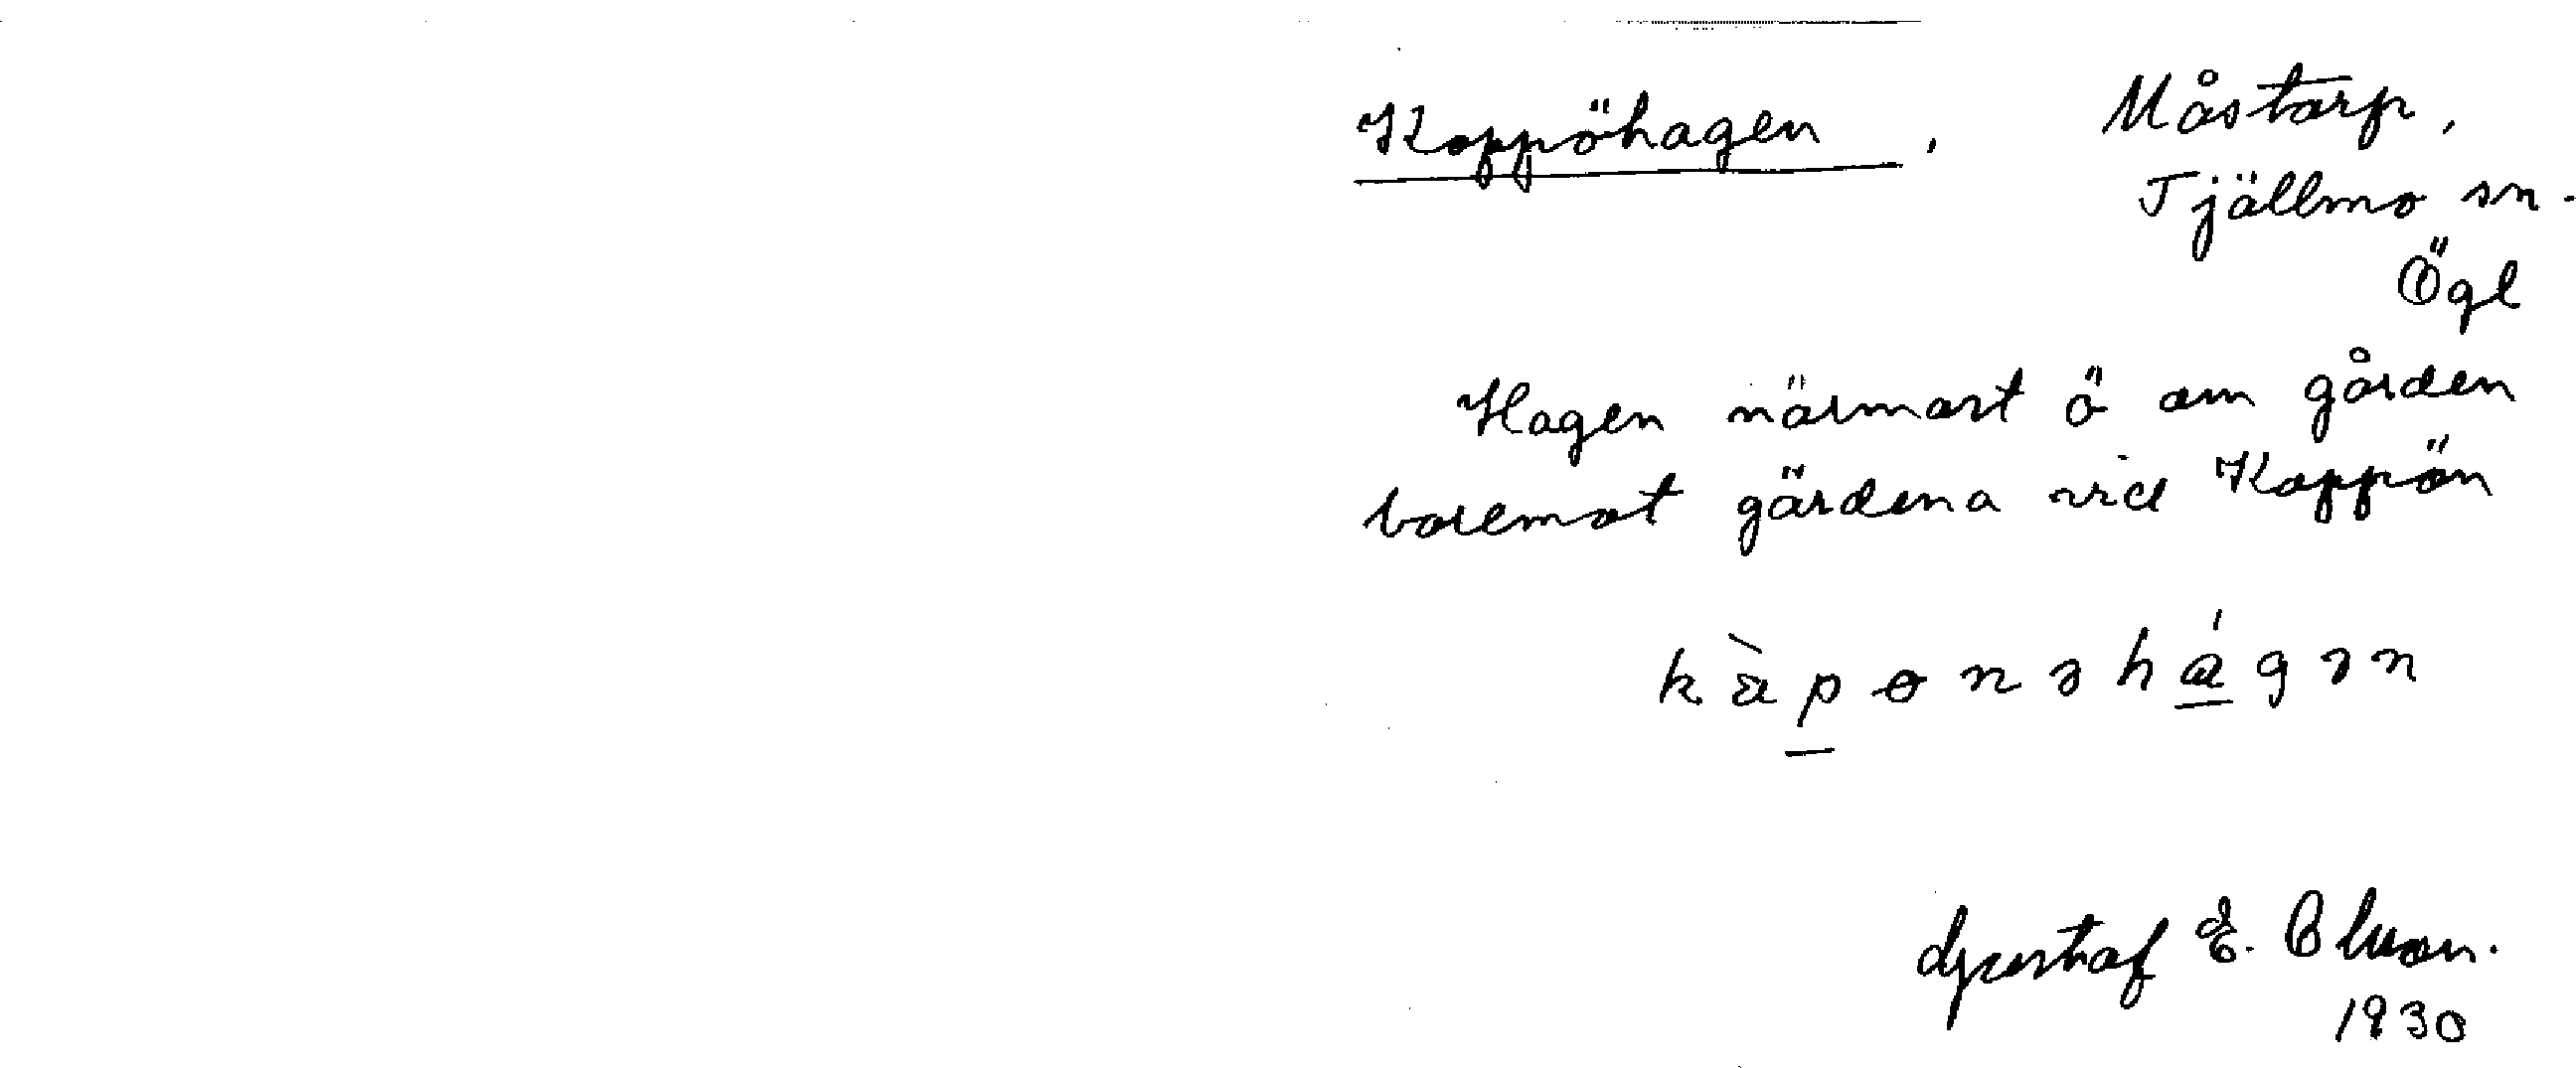 Kappöhagen, Måstarp,
Tjällmo sn.
Ögl
Hagen närmast ö om gården
boremot gärdena vid Kappön
kàpɵnəhágən
Gustaf E. Olsson.
1930